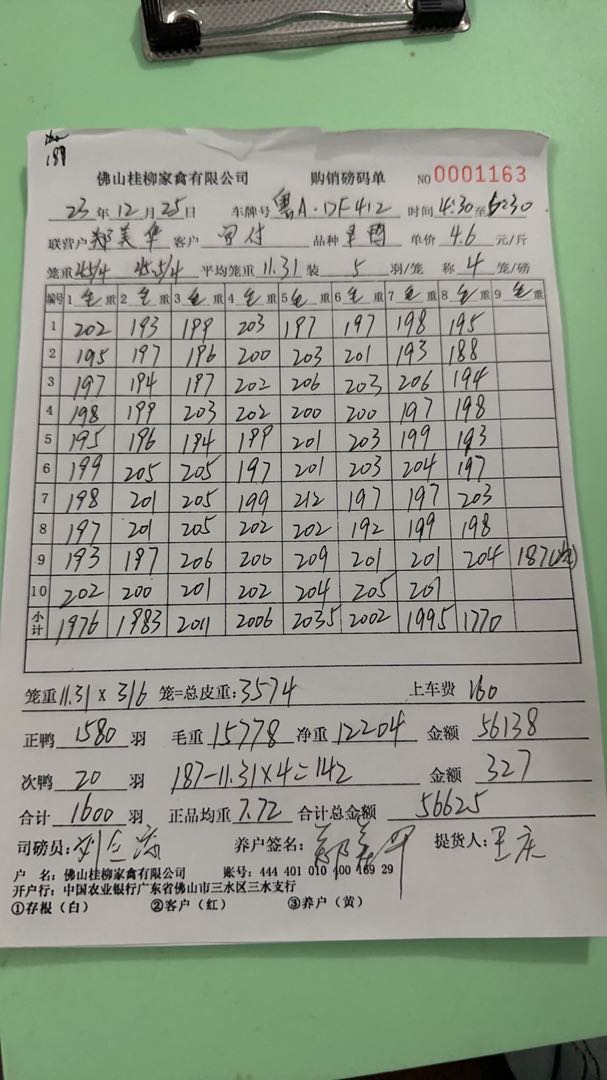 189
佛山桂柳家禽有限公司 购销磅码单 NO 0001163
23 年 12 月 25 日 车牌号 粤A·DF412 时间 4:30 至 5:30
联营户 郑美华 客户 品种 单价 4.6 元/斤
笼重 45/4 45.5/4 平均笼重 11.31 装 5 羽/笼 称 4 笼/磅
编号 1 毛 重 2 毛 重 3 毛 重 4 毛 重 5 毛 重 6 毛 重 7 毛 重 8 毛 重 9 毛 重
1 202 193 199 203 197 197 198 195
2 195 197 196 200 203 201 193 188
3 197 194 197 202 206 203 206 194
4 198 199 203 202 200 200 197 198
5 195 196 194 199 201 203 199 193
6 199 205 205 197 201 203 204 197
7 198 201 205 199 212 197 197 203
8 197 201 205 202 202 192 199 198
9 193 197 206 200 209 201 201 204 187
10 202 200 201 202 204 205 201
小计 1976 1983 2011 2006 2035 2002 1995 1770
笼重 11.31 X 316 笼=总皮重: 3574 上车费 160
正鸭 1580 羽 毛重 15778 净重 12204 金额 56138
次鸭 20 羽 187-11.31X4=142 金额 327
合计 1600 羽 正品均重 7.72 合计总金额 56625
司磅员: 养户签名: 提货人:
户 名: 佛山桂柳家禽有限公司 账号: 444 401 010 400 169 29
开户行: 中国农业银行广东省佛山市三水区三水支行
①存根(白) ②客户(红) ③养户(黄)